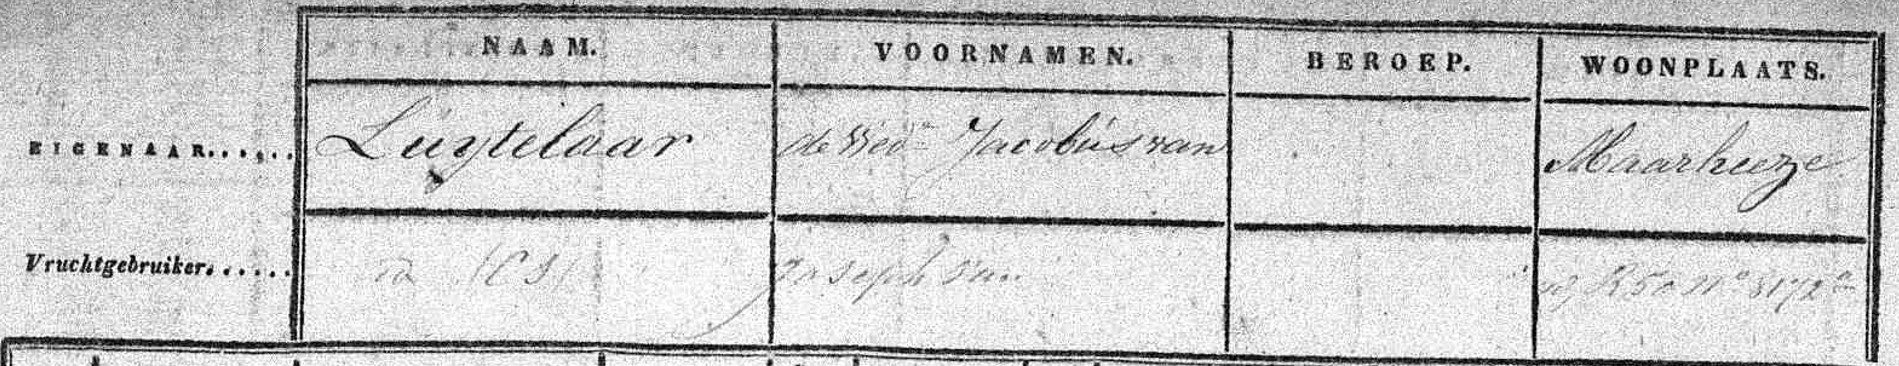 NAAM. VOORNAMEN. BEROEP. WOONPLAATS.
EIGENAAR...... Luytelaar de Wede Jacobus van Maarheeze
Vruchtgebruiker...... (CS) Joseph van R50 No 8172a